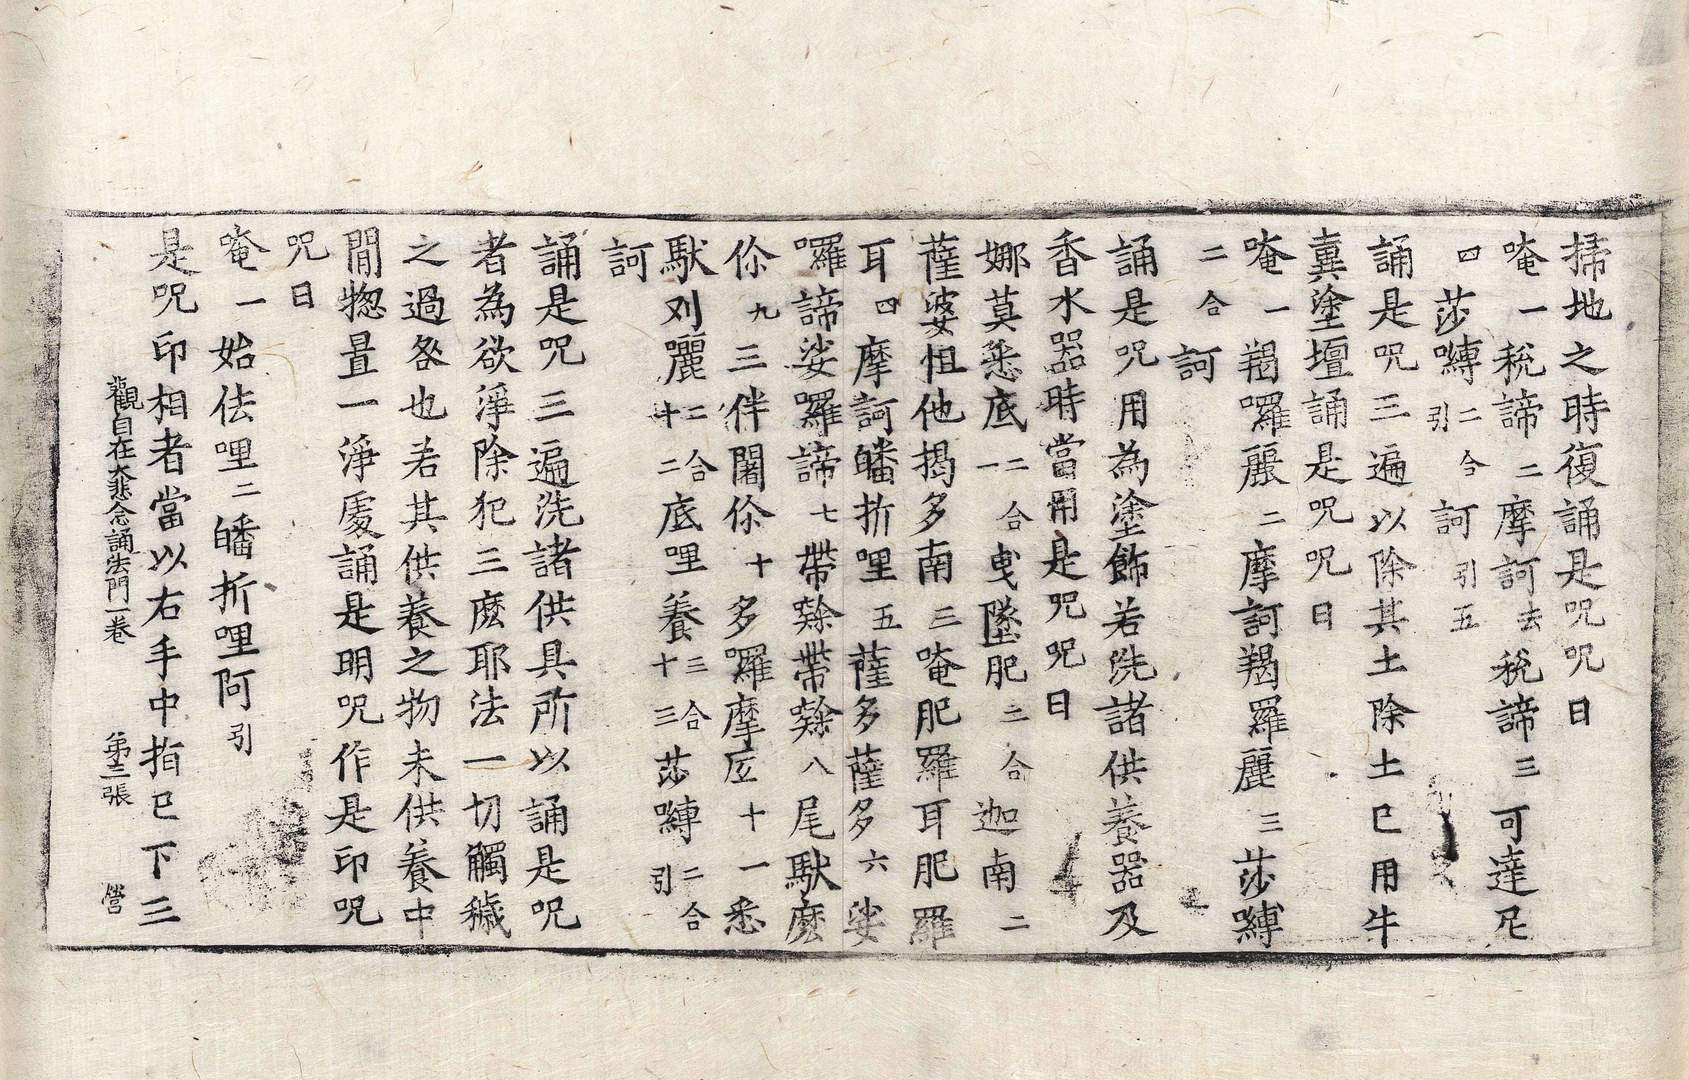 掃地之時復誦是呪呪曰
唵一稅諦二摩訶去稅諦三可達尼
四莎嚩二合引訶引五
誦是呪三遍以除其土除土已用牛
糞塗壇誦是呪呪曰
唵一羯囉麗二摩訶羯羅麗三莎嚩
二合訶
誦是呪用為塗飾若洗諸供養器及
香水器時當用是呪呪曰
娜莫悉底一二合曳墜肥二合迦南二
薩婆怛他揭多南三唵肥羅耳肥羅
耳四摩訶皤折哩五薩多薩多六娑
囉諦娑羅諦七帶㘑帶㘑八尾馱麼
你九三伴闍你十多羅摩底十一悉
馱刈囇二合十二底哩養三合十三莎嚩二合引
訶
誦是呪三遍洗諸供具所以誦是呪
者為欲淨除犯三麼耶法一切觸穢
之過咎也若其供養之物未供養中
間惣置一淨處誦是明呪作是印呪
呪曰
唵一始佉哩二皤折哩阿引
是呪印相者當以右手中指已下三
觀自在大悲念誦法門一卷 第三張 營